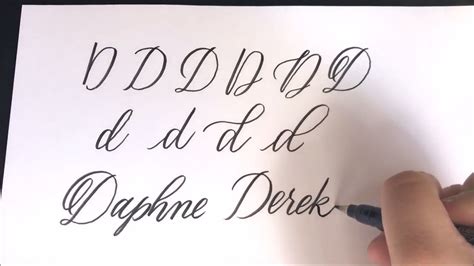 D D D D D D
d d d d
Daphne Derek